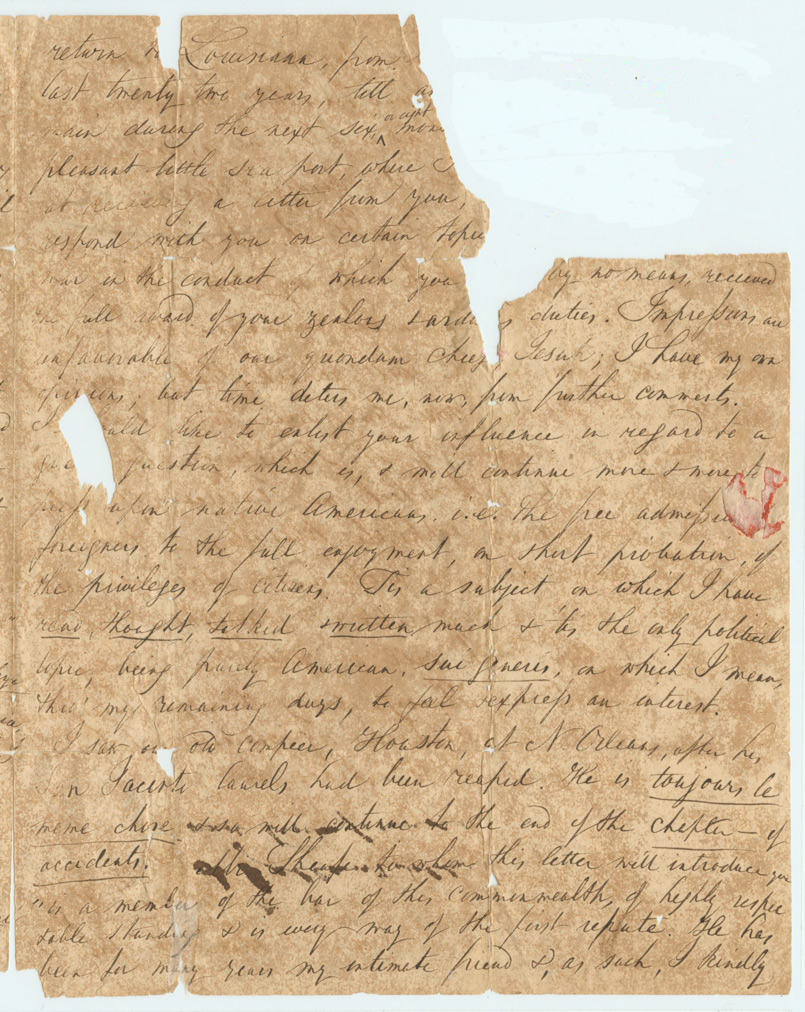 return to Louisiana, from
last twenty two years, till
main during the next six, or eight mon
pleasant little sea port, where
at receiving a letter from you,
respond with you on certain topic
war in the conduct of which you by no means, received
the full award of your zealous & arduous duties. Impressions are
unfavorable of our quondam chief Jesup; I have my own
opinions; but time deters me, now, from further comments.
I would like to enlist your influence in regard to a
question, which is, & will continue more & more to
press upon native Americans. i.e. the free admission
foreigners to the full enjoyment, on short probation, of
the privileges of citizens. 'Tis a subject on which I have
read, thought, talked & written much & 'tis the only political
topic, being purely American, sui generis, on which I mean,
thro' my remaining days, to feel & express an interest.
I saw our old compeer, Houston, at N Orleans, after his
San Jacinto laurels had been reaped. He is toujours le
meme chose & so will continue to the end of the chapter — of
accidents. to whom this letter will introduce you
is a member of the bar of this commonwealth, of highly respec
table standing & is every way of the first repute. He has
been for many years my intimate friend &, as such, I kindly